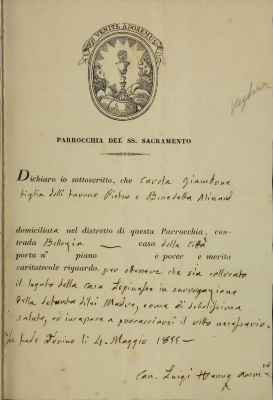 VENITE ADOREMUS
PARROCCHIA DEL SS. SACRAMENTO
Dichiaro io sottoscritto, che
figlia delli furono Pietro e Benedetta
domiciliata nel distretto di questa Parrocchia, con-
trada casa della Città
porta n° piano è pover e merita
caritatevole riguardo. per ottenere che sia collocato
il legato della Casa in surrogazione
della defunta di lei Madre, come di debolissima
salute, ed incapace a procacciarsi il vitto necessario.
In fede Torino li 4. Maggio 1855
Can. Luigi